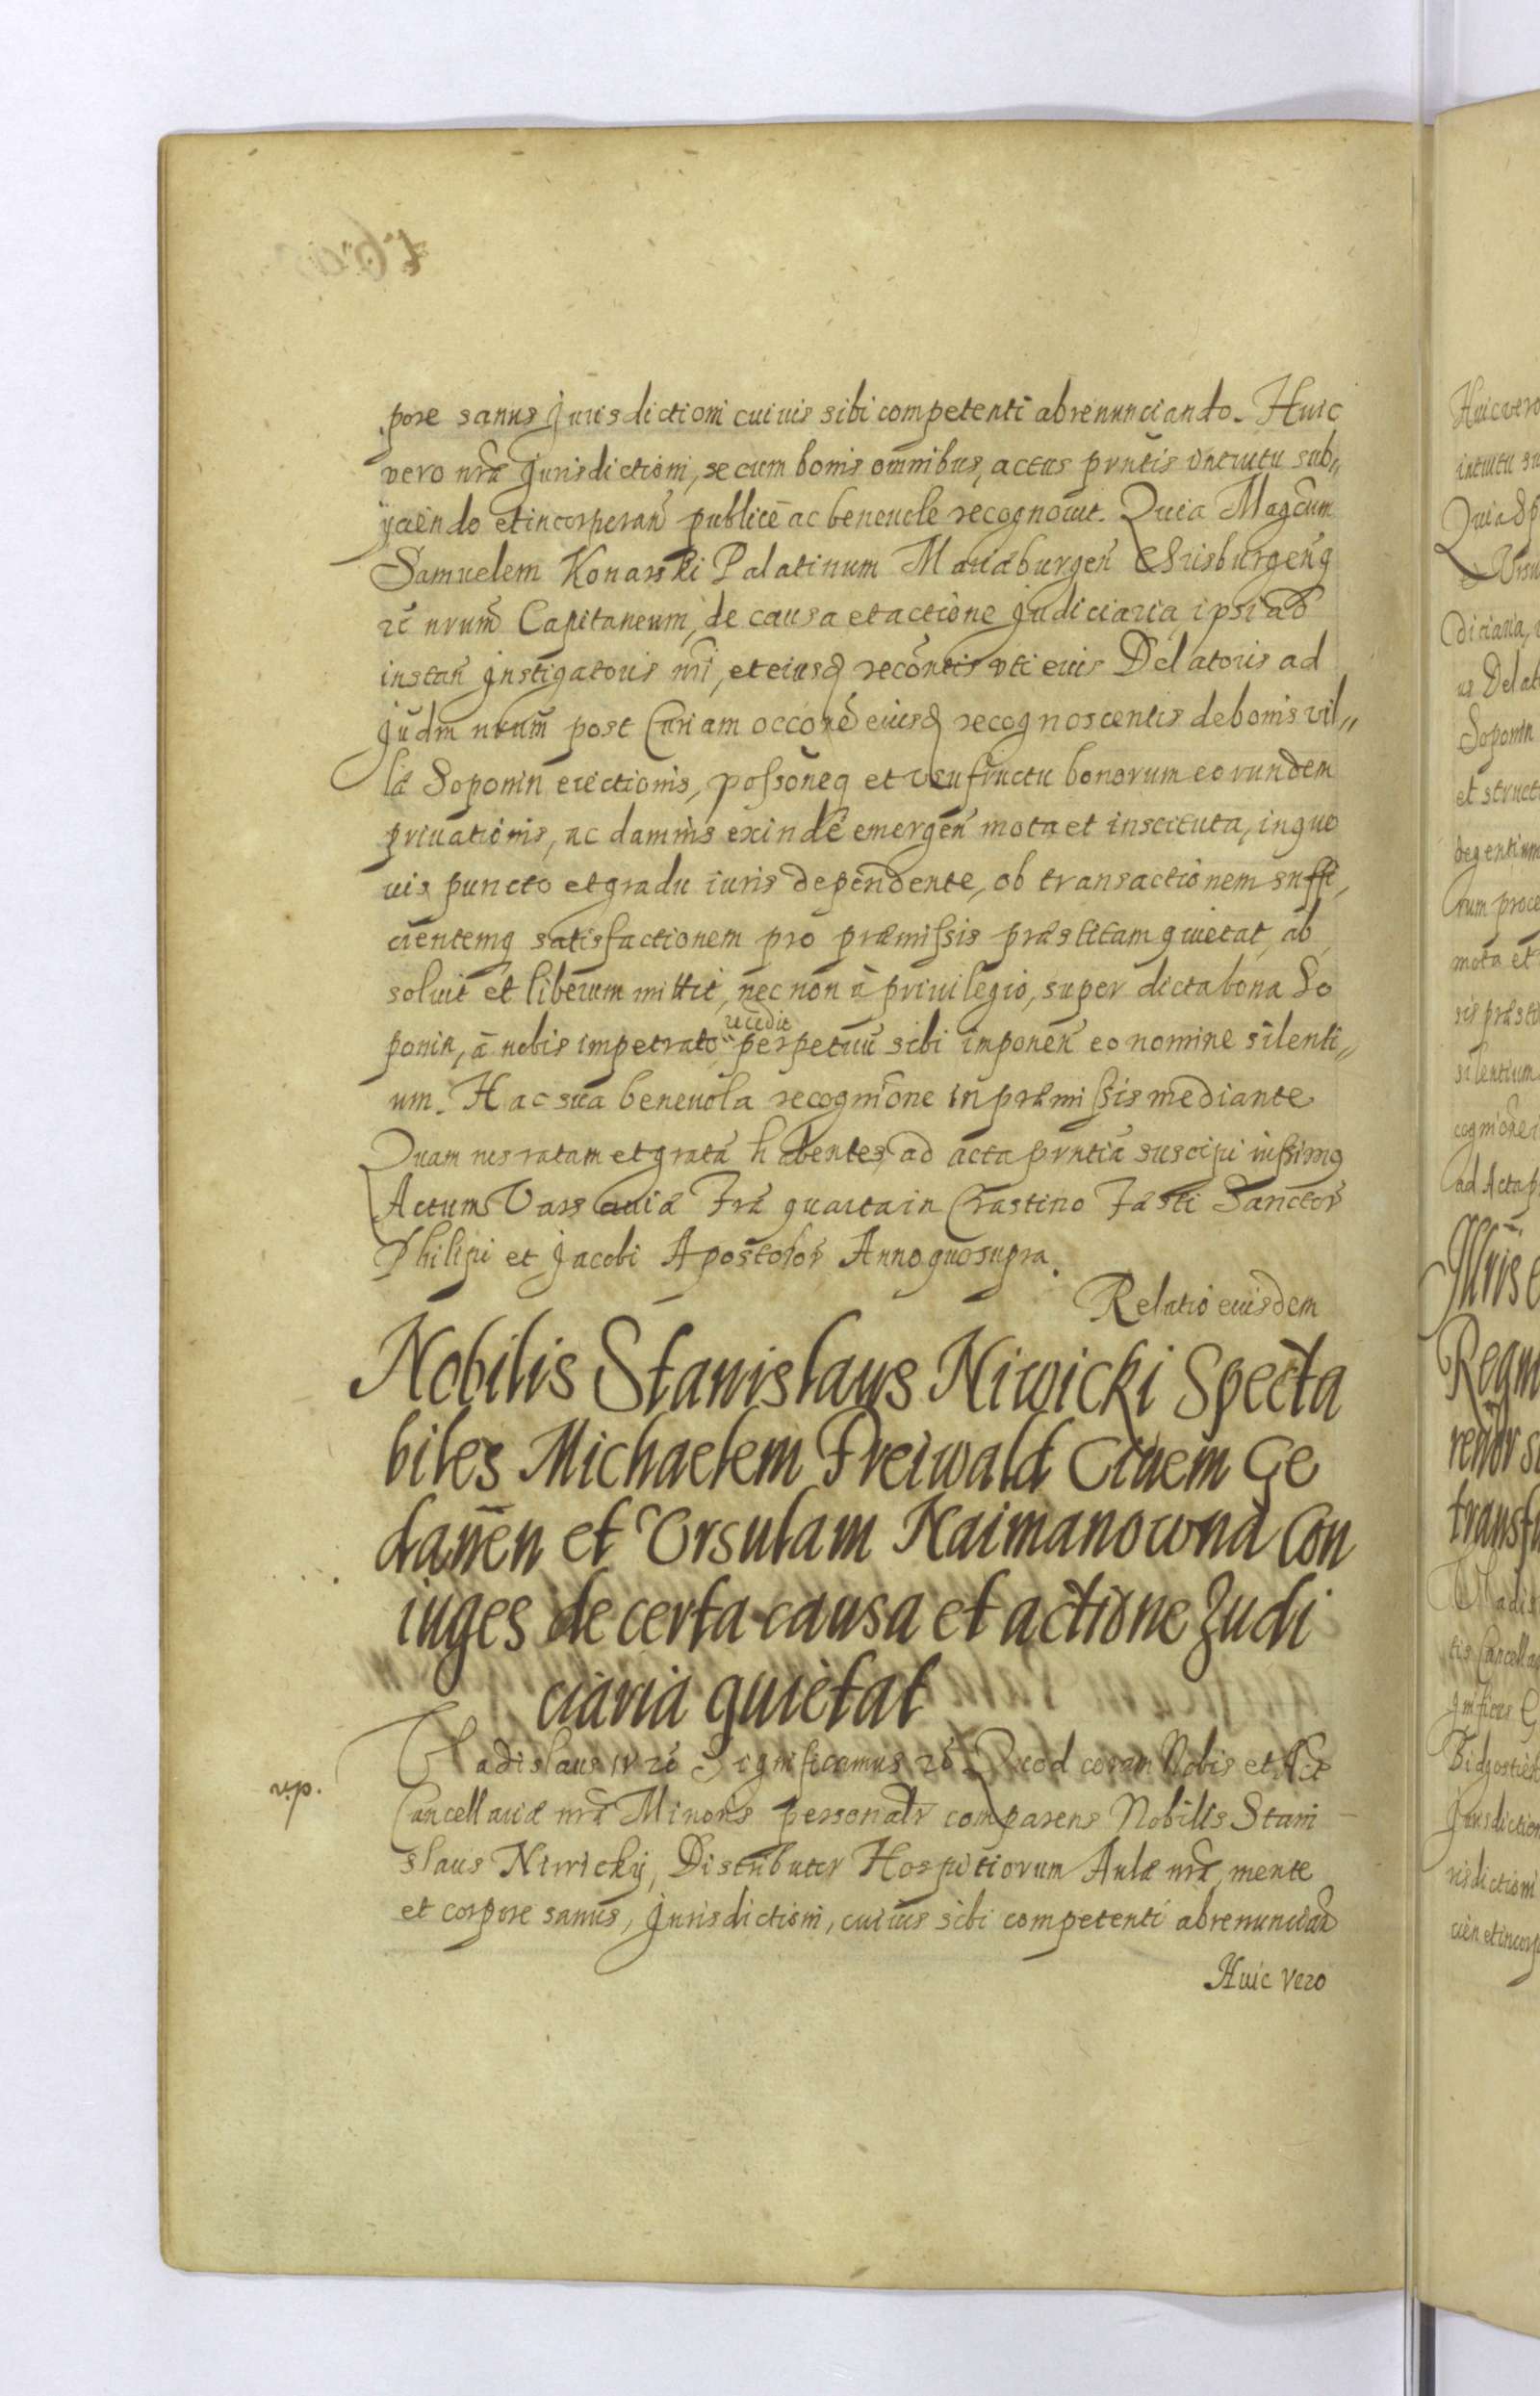 pore sanus Jurisdictioni cuiuis sibi competenti abrenunciando. Huic
vero nrae Jurisdictioni, se cum bonis omnibus, actus pntis intuitu sub„
ijciendo et incorporan̄ publicē ac beneuole recognouit. Quia Magcum
Samuelem Konarski Palatinum Mariaeburgen̄ Chrisburgenq
rē nrum̄ Capitaneum, de causa et actione Judiciaria ipsi ad
instan̄ Instigatoris nri, et eiusd recontis vti eius Delatoris ad
Judm nrum̄ post Curiam occone eiusd recognoscentis de bonis vil„
lae Soponin eiectionis, possoneq et vsufructu bonorum eorundem
priuationis, ac damnis exinde emergen̄ mota et instituta, in quo
uis puncto et gradu iuris dependente, ob transactionem suffi,
cientemq satisfactionem pro praemissis praestitam quietat, ab
soluit et liberum mittit, nec non à priuilegio, super dicta bona So
ponin, à nobis impetrato recedit perpetuū sibi imponen̄ eo nomine silenti„
um. Hac sua beneuola recognione in praemissis mediante
Quam nos ratam et gratā habentes, ad acta pntia suscipi iussimq
Actum Varsauiae Fra quarta in Crastino Festi Sanctor
Philipi et Jacobi Apostolor Anno quo supra.
Relatio eiusdem
Nobilis Stanislaus Niwicki Specta
biles Michaelem Freiwald Ciuem Ge
danen̄ et Vrsulam Naimanowna Con
iuges de certa causa et actione Judi
ciaria quietat
Vladislaus IV rē Significamus rē Quod coram Nobis et Act
v.p.
Cancellariae nrae Minoris personalr comparens Nobilis Stani
slaus Niwickij, Distributor Hospitiorum Aulae nrae, mente
et corpore sanus, Jurisdictioni, cuiuis sibi competenti abrenuncian̄
Huic vero